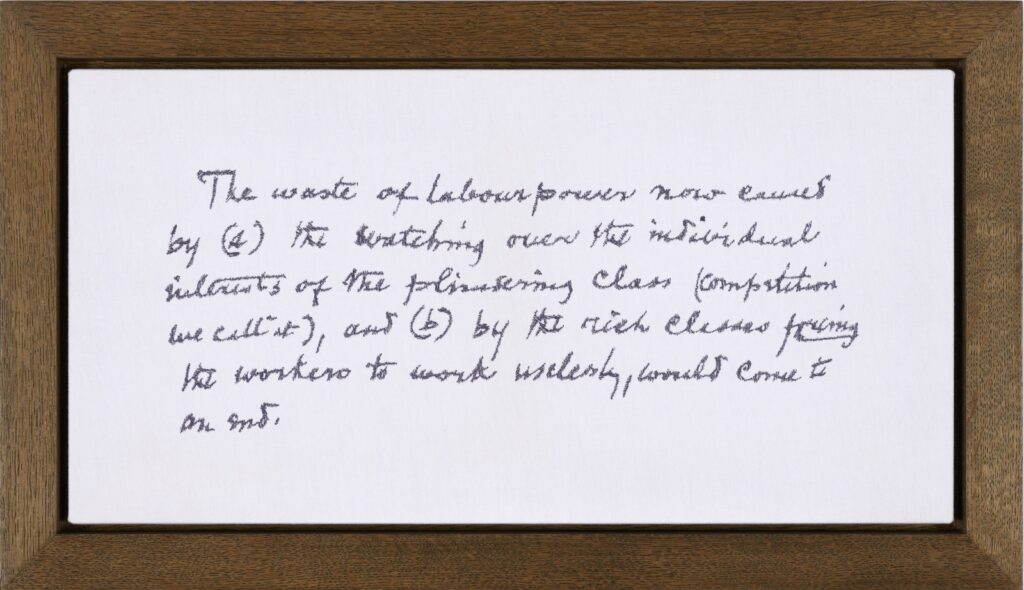 The waste of labour power now caused
by (a) the watching over the individual
interests of the plundering class (competition
we call it), and (b) by the rich classes forcing
the workers to work uselessly, would come to
an end.